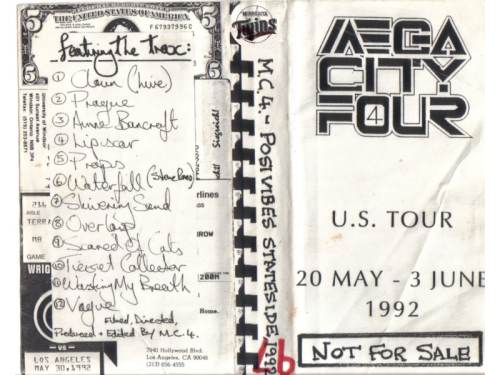 THE UNITED STATES OF AMERICA
F 67937996 C
5
5
Featuring the trax:
① Clown (live)
② Prague
③ Anne Bancroft
④ Lipscar
⑤ Props
⑥ Waterfall (Stone Roses)
⑦ Shivering Sand
⑧ Overlap
⑨ Scared Of Cats
⑩ Ticket Collector
⑪ Wasting My Breath
⑫ Vague
Filmed, Directed,
Produced + Edited By M.C.4.
University of Windsor
401 Sunset Avenue
Windsor Ontario
N9B 3P4
AISLE
TERRA
GAME
WRIG
VS
LOS ANGELES
MAY 30, 1992
rlines
ROW
200M
Home.
7940 Hollywood Blvd.
Los Angeles, CA 90046
(213) 656-4555
MINNESOTA
Twins
M.C.4. - POSIVIBES STATESIDE 1992
MEGA
CITY
FOUR
4
U.S. TOUR
20 MAY - 3 JUNE
1992
NOT FOR SALE